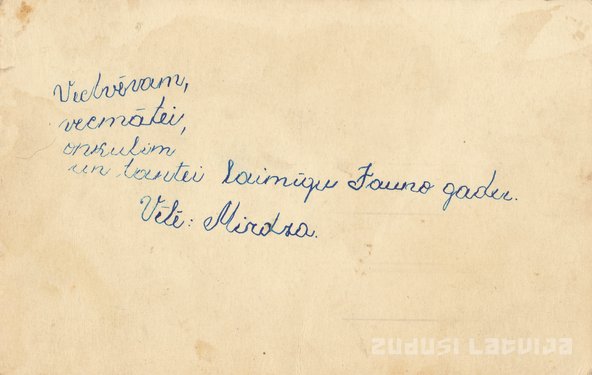 Vectvēvam,
vecmātei,
onkulim
un tantei laimīgu Jauno gadu.
Vēlē: Mirdza.
ZUDUSI LATVIJA